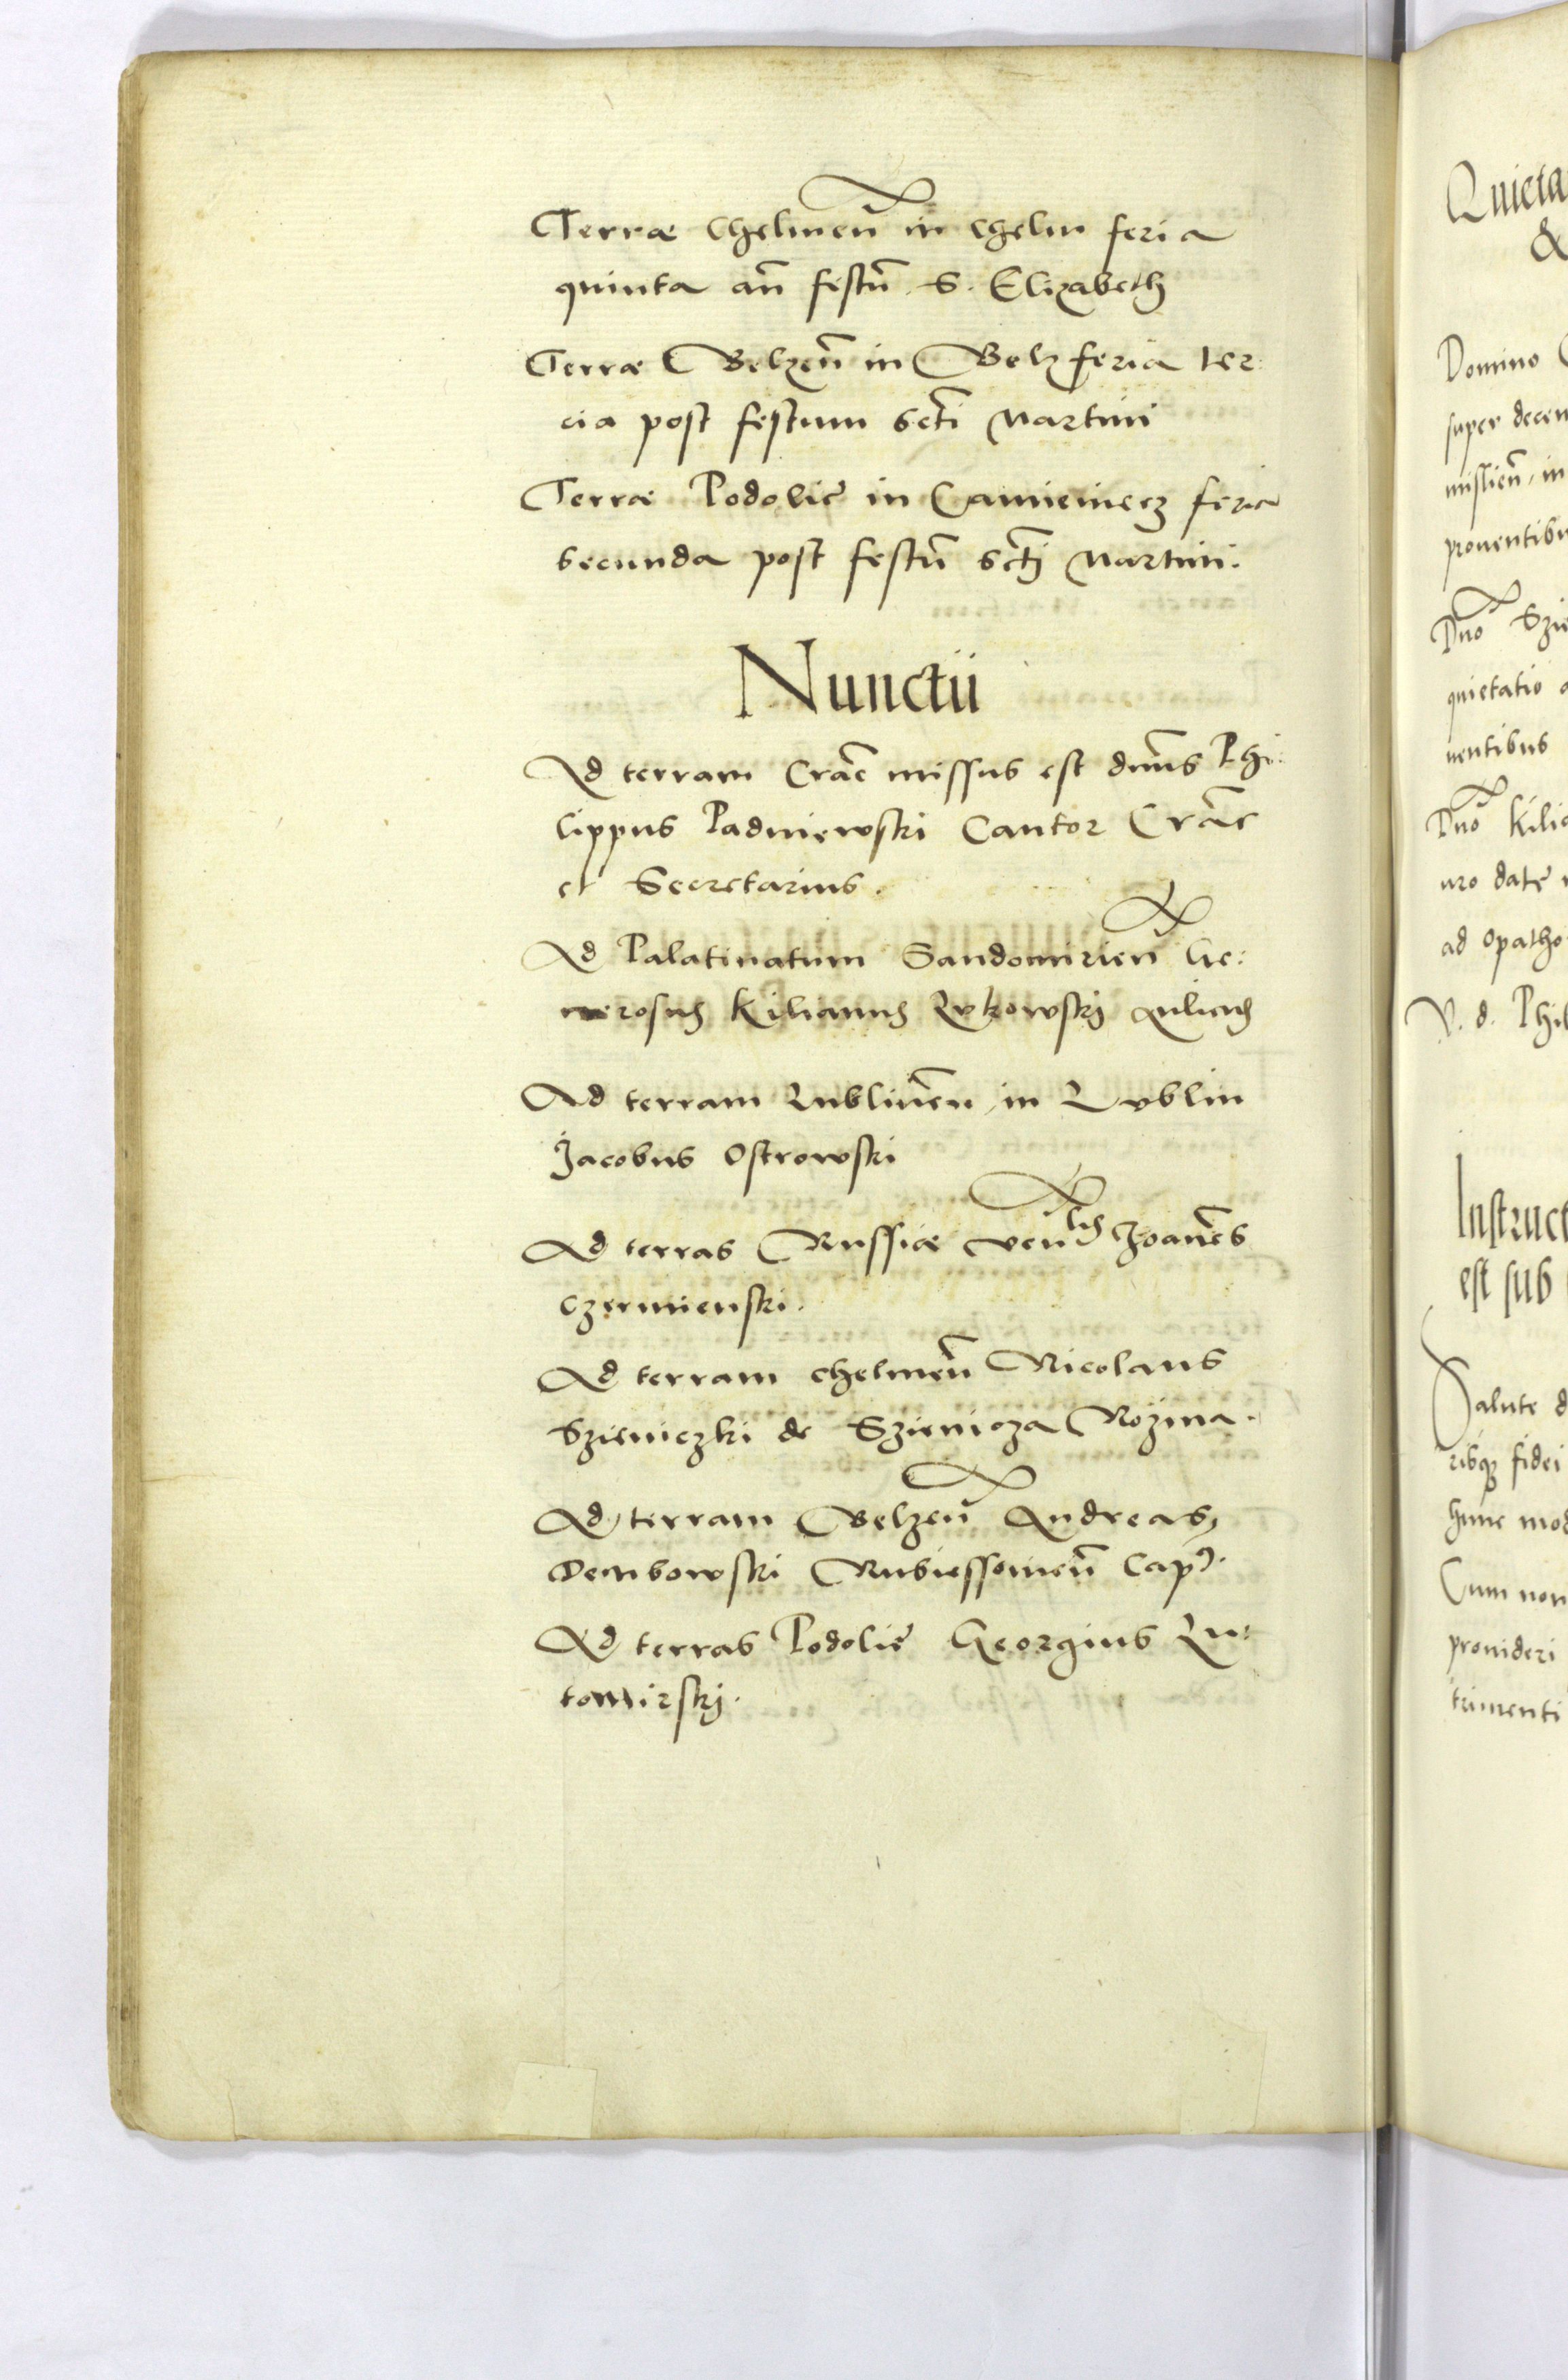 Terræ Chelmen̄ in Chelm feria
quinta an̄ festū S. Elizabeth
Terræ Belzen̄ in Belz feria ter:
cia post festum Scti Martini
Terræ Podolię in Camieniecz feria
secunda post festū Sctj Martini.
Nunctii
Ad terram Crac̄ missus est dn̄us Phi:
lippus Padniewski Cantor Crac̄
et Secretarius.
Ad Palatinatum Sandomirien̄ Ge:
nerosus Kilianus Lukowskj Aulicus
Ad terram Lublinen̄ in Lublin
Jacobus Ostrowski
Ad terras Russiæ ven̄lis Joan̄es
Czermienski.
Ad terram Chelmen̄ Nicolaus
Szieniczki de Szienicza Rozma.
Ad terram Belzen̄ Andreas
Dembowski Rubiessowien̄ Cap.
Ad terras Podolię Georgius Lu:
tomirskj.
Quieta
&
Domino
super decem
mislien̄ in
prouentibu
Dn̄o Szie
quietatio a
uentibus
Dn̄o Kilia
uro datę
ad Opatho
V. d. Phil
Instruct
est sub
Salute d
ribq3 fidei
hunc mod
Cum non
prouideri
trimenti